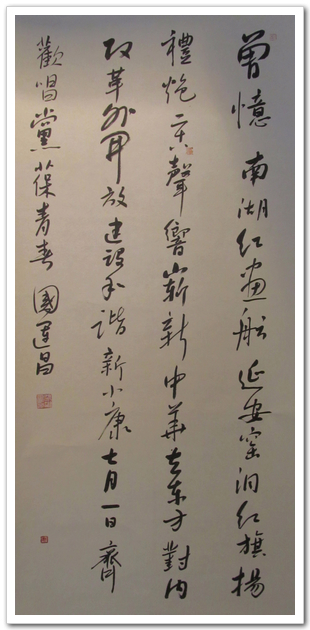 曾憶南湖红画船延安窑洞红旗揚
禮炮二八聲響嶄新中華立东方對内
改革外開放建設和諧新小康七月一日齊
歡唱黨葆青春國運昌